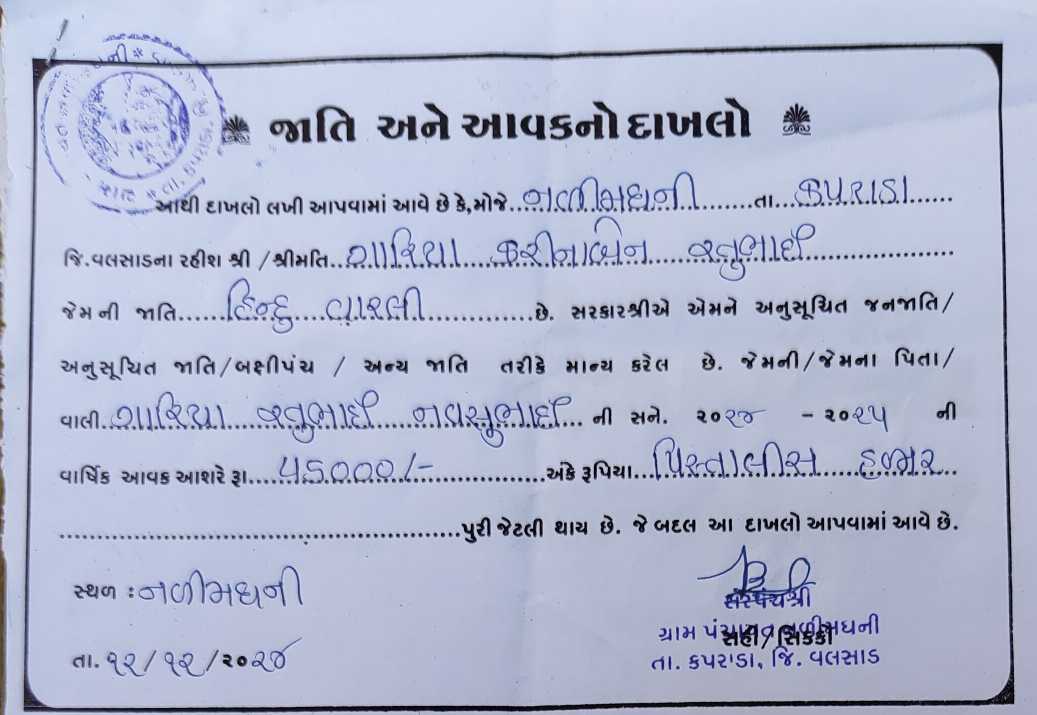 જાતિ અને આવકનો દાખલો
આથી દાખલો લખી આપવામાં આવે છે કે,મોજે..નળીમધની.......તા...કપરાડા......
જિ.વલસાડના રહીશ શ્રી /શ્રીમતિ..ગારિયા....કરીનાબેન....રતુભાઈ..................
જેમની જાતિ......હિન્દુ વારલી............છે. સરકારશ્રીએ એમને અનુસૂચિત જનજાતિ/
અનુસૂચિત જાતિ/બક્ષીપંચ / અન્ય જાતિ તરીકે માન્ય કરેલ છે. જેમની/જેમના પિતા/
વાલી..ગારિયા....રતુભાઈ....નવસુભાઈ... ની સને. ૨૦૨૪ - ૨૦૨૫ ની
વાર્ષિક આવક આશરે રૂા....45000/-..............અંકે રૂપિયા...પિસ્તાલીસ....હજાર...
..............................................પુરી જેટલી થાય છે. જે બદલ આ દાખલો આપવામાં આવે છે.
સ્થળ : નળીમધની
સરપંચશ્રી
ગ્રામ પંચાયત નળીમધની
સહી/સિક્કો
તા. ૧૨/૧૨/૨૦૨૪
તા. કપરાડા, જિ. વલસાડ